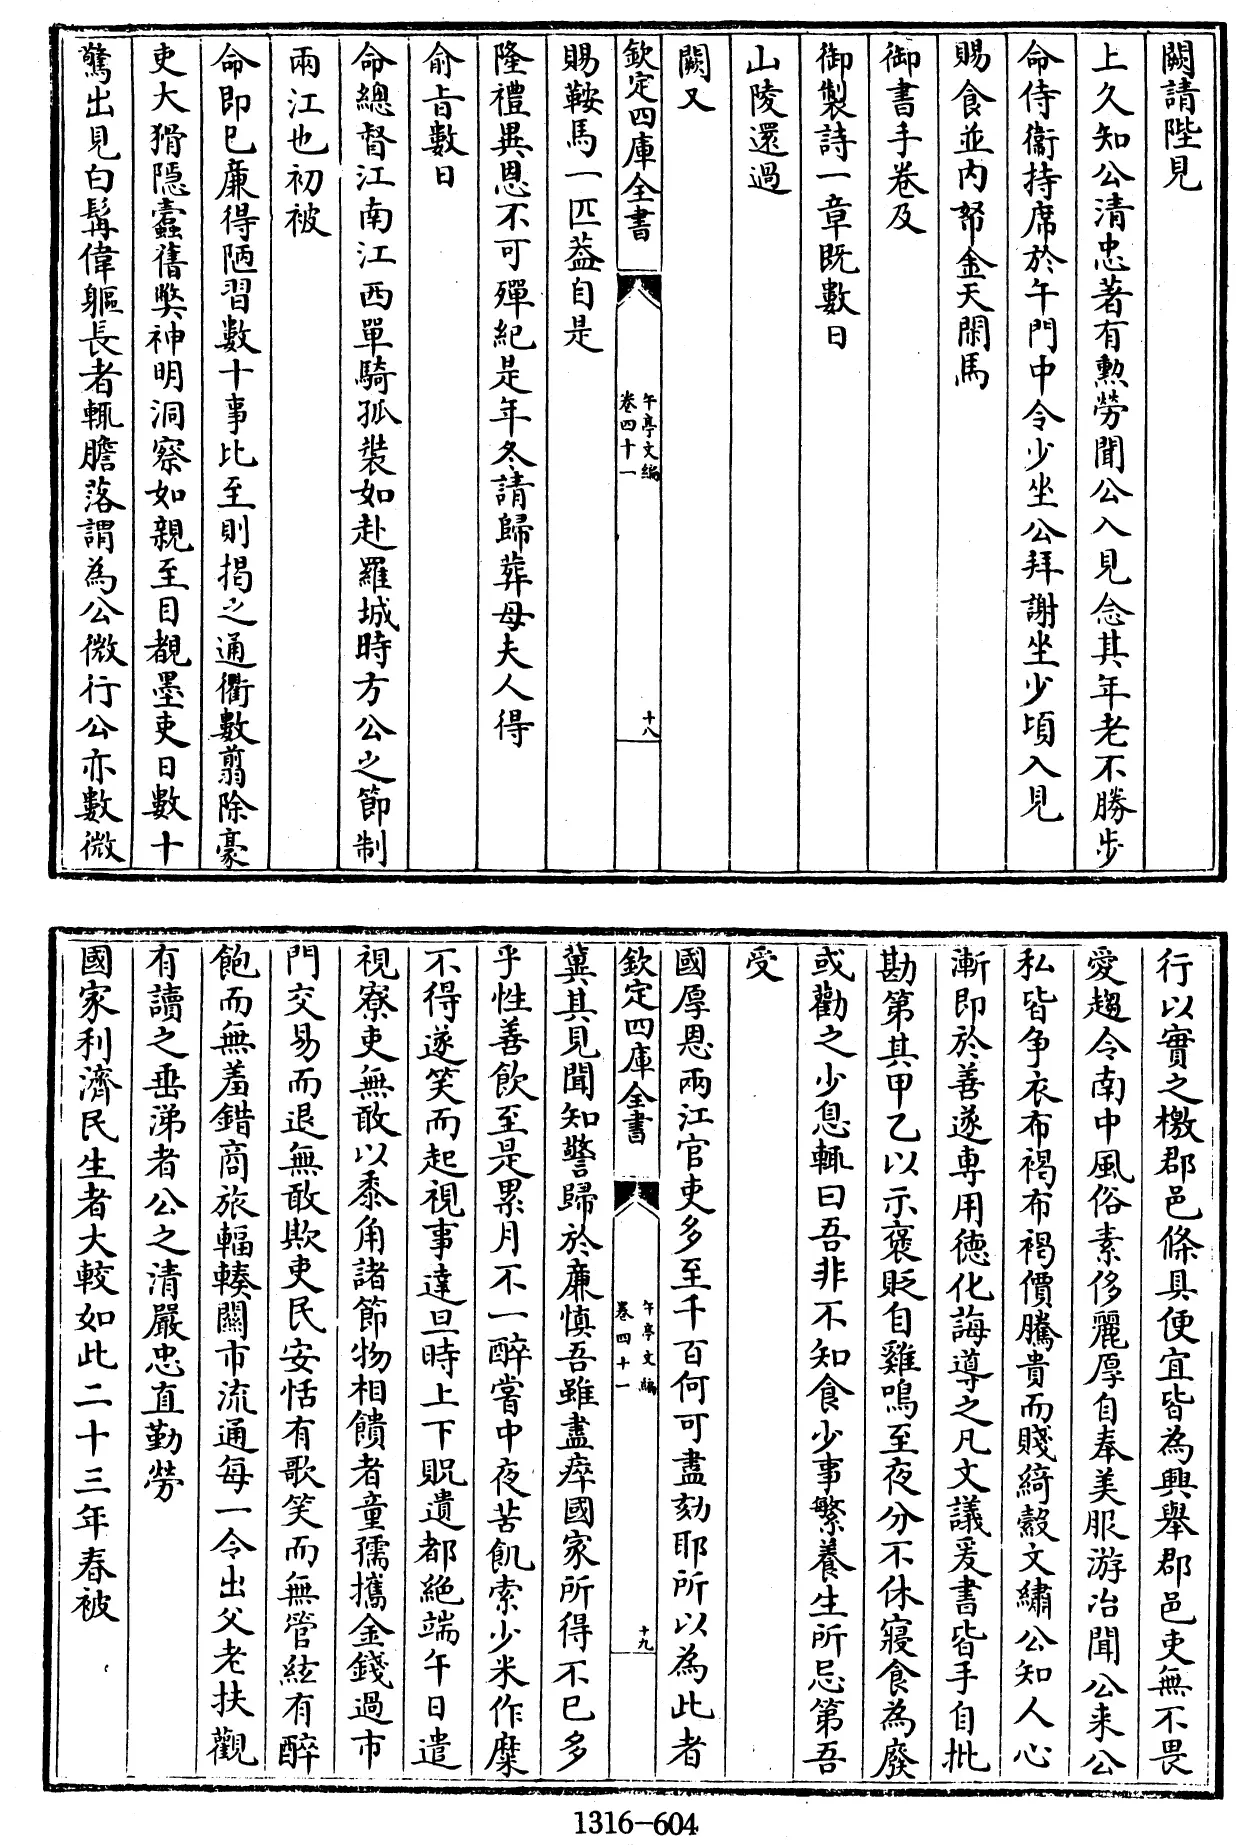 闕請陛見
上久知公清忠著有勲勞聞公入見念其年老不勝步
命侍衞持席於午門中令少坐公拜謝坐少頃入見
賜食並内帑金天閑馬
御書手卷及
御製詩一章既數日
山陵還過
闕又
欽定四庫全書
午亭文編
卷四十一
十八
賜鞍馬一匹葢自是
隆禮異恩不可殫紀是年冬請歸葬母夫人得
俞旨數日
命總督江南江西單騎孤裝如赴羅城時方公之節制
兩江也初被
命即已廉得陋習數十事比至則揭之通衢數翦除豪
吏大猾隱蠹舊獘神明洞察如親至目覩墨吏日數十
驚出見白髯偉軀長者輒膽落謂為公微行公亦數微
行以實之檄郡邑條具便宜皆為興舉郡邑吏無不畏
愛趨令南中風俗素侈麗厚自奉美服游冶聞公来公
私皆争衣布褐布褐價騰貴而賤綺縠文繡公知人心
漸即於善遂專用德化誨導之凡文議爰書皆手自批
勘第其甲乙以示褒貶自雞鳴至夜分不休寢食為廢
或勸之少息輒曰吾非不知食少事繁養生所忌第吾
受
國厚恩兩江官吏多至千百何可盡劾耶所以為此者
欽定四庫全書
午亭文編
卷四十一
十九
冀其見聞知警歸於廉慎吾雖盡瘁國家所得不已多
乎性善飲至是累月不一醉嘗中夜苦飢索少米作糜
不得遂笑而起視事達旦時上下貺遺都絶端午日遣
視寮吏無敢以黍角諸節物相饋者童孺攜金錢過市
門交易而退無敢欺吏民安恬有歌笑而無管絃有醉
飽而無羞錯商旅輻輳關市流通每一令出父老扶觀
有讀之垂涕者公之清嚴忠直勤勞
國家利濟民生者大較如此二十三年春被
1316-604